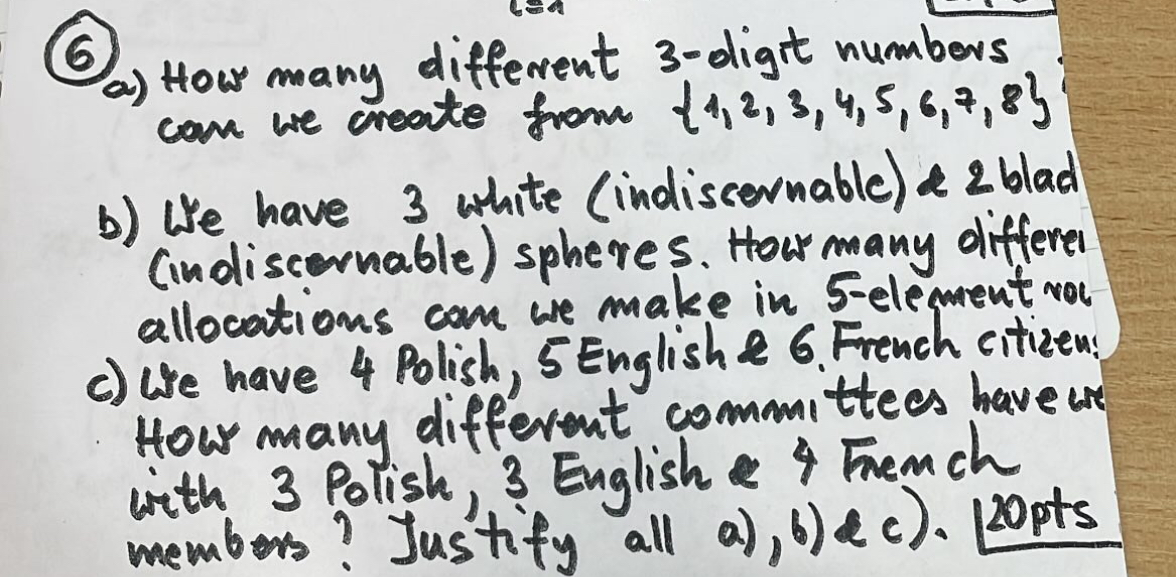 6
a) How many different 3-digit numbers
can we create from {1,2,3,4,5,6,7,8}
b) We have 3 white (indiscernable) & 2 blac
(indiscernable) spheres. How many differe
allocations can we make in 5-element
c) We have 4 Polish, 5 English & 6 French citizen
How many different committees have we
with 3 Polish, 3 English & 4 French
members? Justify all a), b) & c). 20pts